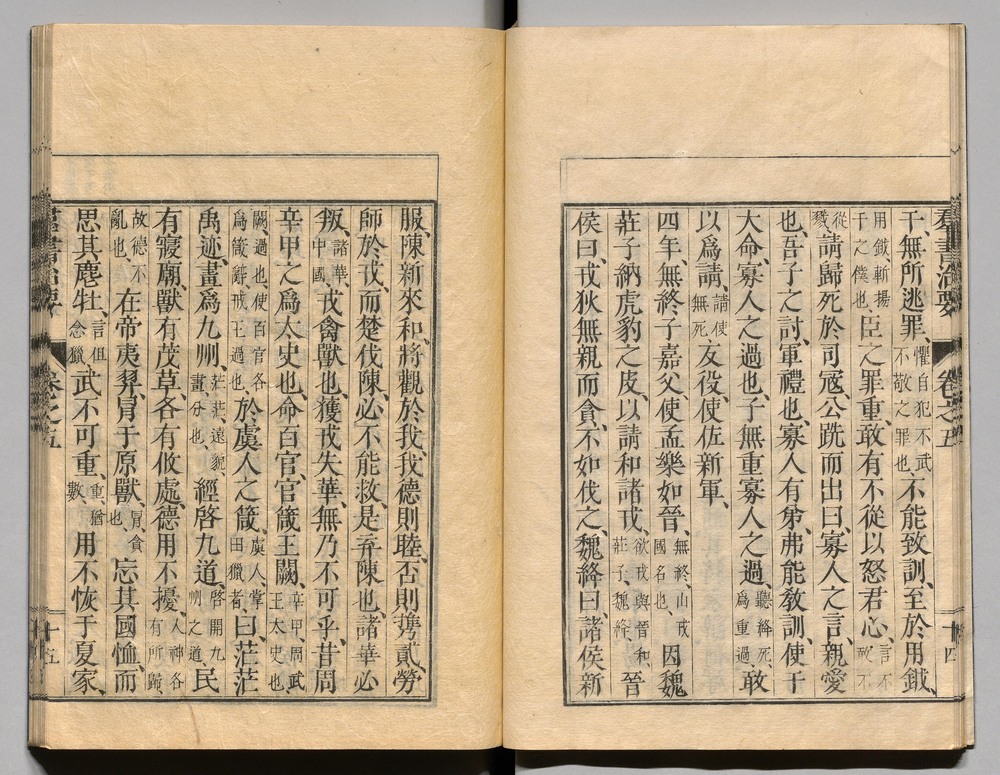 群書治要 卷之五 十四
干、無所逃罪、懼自犯不武不敬之罪也、不能致訓、至於用鉞、
用鉞、斬揚干之僕也、臣之罪重、敢有不從以怒君心、言不敢不
從戮、請歸死於司寇、公跣而出曰、寡人之言、親愛
也、吾子之討、軍禮也、寡人有弟、弗能敎訓、使干
大命、寡人之過也、子無重寡人之過、聽絳死爲重過、敢
以爲請、請使無死、友役、使佐新軍、
四年、無終子嘉父、使孟樂如晉、無終、山戎國名也、因魏
莊子納虎豹之皮、以請和諸戎、欲戎與晉和、莊子、魏絳、晉
侯曰、戎狄無親而貪、不如伐之、魏絳曰、諸侯新
服、陳新來和、將觀於我、我德則睦、否則攜貳、勞
師於戎、而楚伐陳、必不能救、是弃陳也、諸華必
叛、諸華、中國、戎禽獸也、獲戎失華、無乃不可乎、昔周
辛甲之爲太史也、命百官、官箴王闕、辛甲、周武王太史也
闕、過也、使百官各爲箴辭、戒王過也、於虞人之箴、虞人、掌田獵者、曰、茫茫
禹迹、畫爲九州、茫茫遠貌、畫、分也、經啓九道、啓開九州之道、民
有寢廟、獸有茂草、各有攸處、德用不擾、人神各有所歸、
故德不亂也、在帝夷羿、冐于原獸、冐、貪也、忘其國恤、而
思其麀牡、言但念獵、武不可重、重、猶數、用不恢于夏家、
群書治要 卷之五 十五